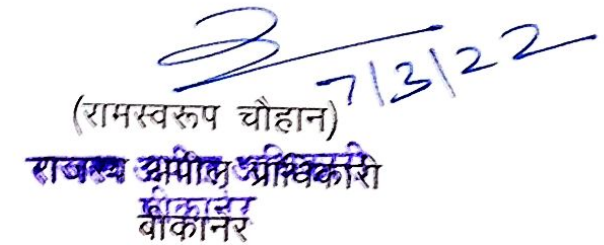 7/3/22
(रामस्वरूप चौहान)
राजस्व अपील प्राधिकारी
बीकानेर